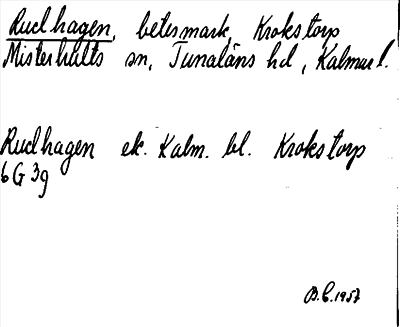 Rudhagen, betesmark, Krokstorp
Misterhults sn, Tunaläns hd, Kalmar l.
Rudhagen ek. Kalm. bl. Krokstorp
6G 3g
B.E. 1957